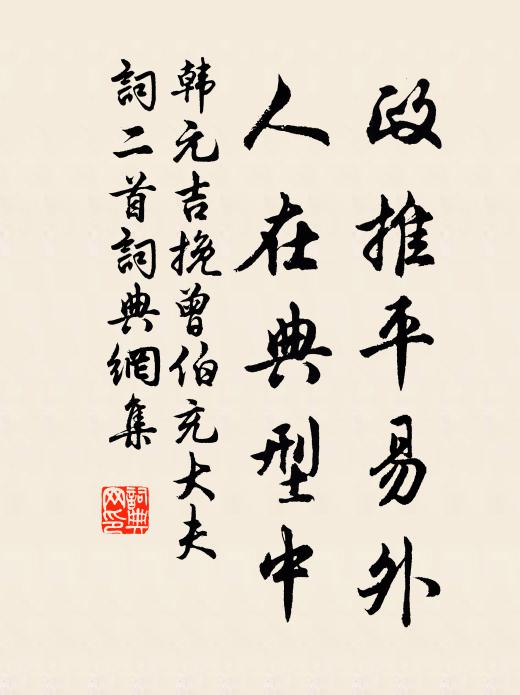 政推平易外
人在典型中
韩元吉挽曾伯充大夫
詞二首詞典網集
詞典
网印